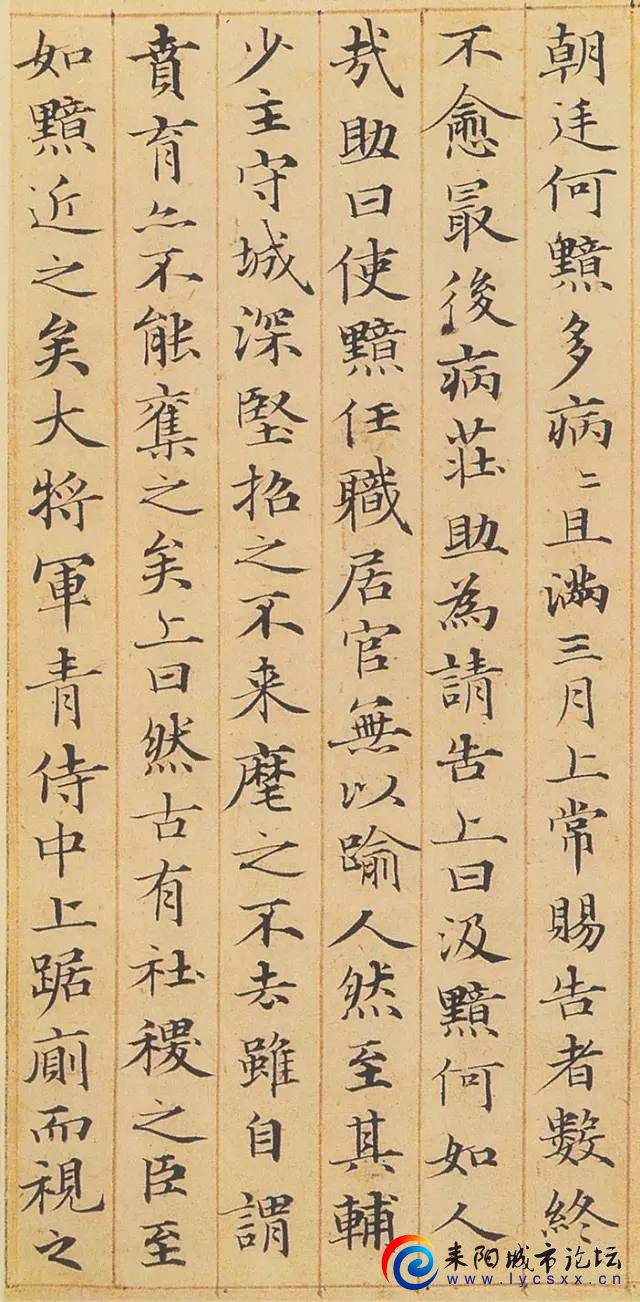 朝廷何黯多病〻且滿三月上常賜告者數終
不愈最後病莊助為請告上曰汲黯何如人
㢤助曰使黯任職居官無以踰人然至其輔
少主守城深堅招之不来麾之不去雖自謂
賁育亦不能奪之矣上曰然古有社稷之臣至
如黯近之矣大將軍青侍中上踞廁而視之
耒阳城市论坛
www.lycsxx.cn